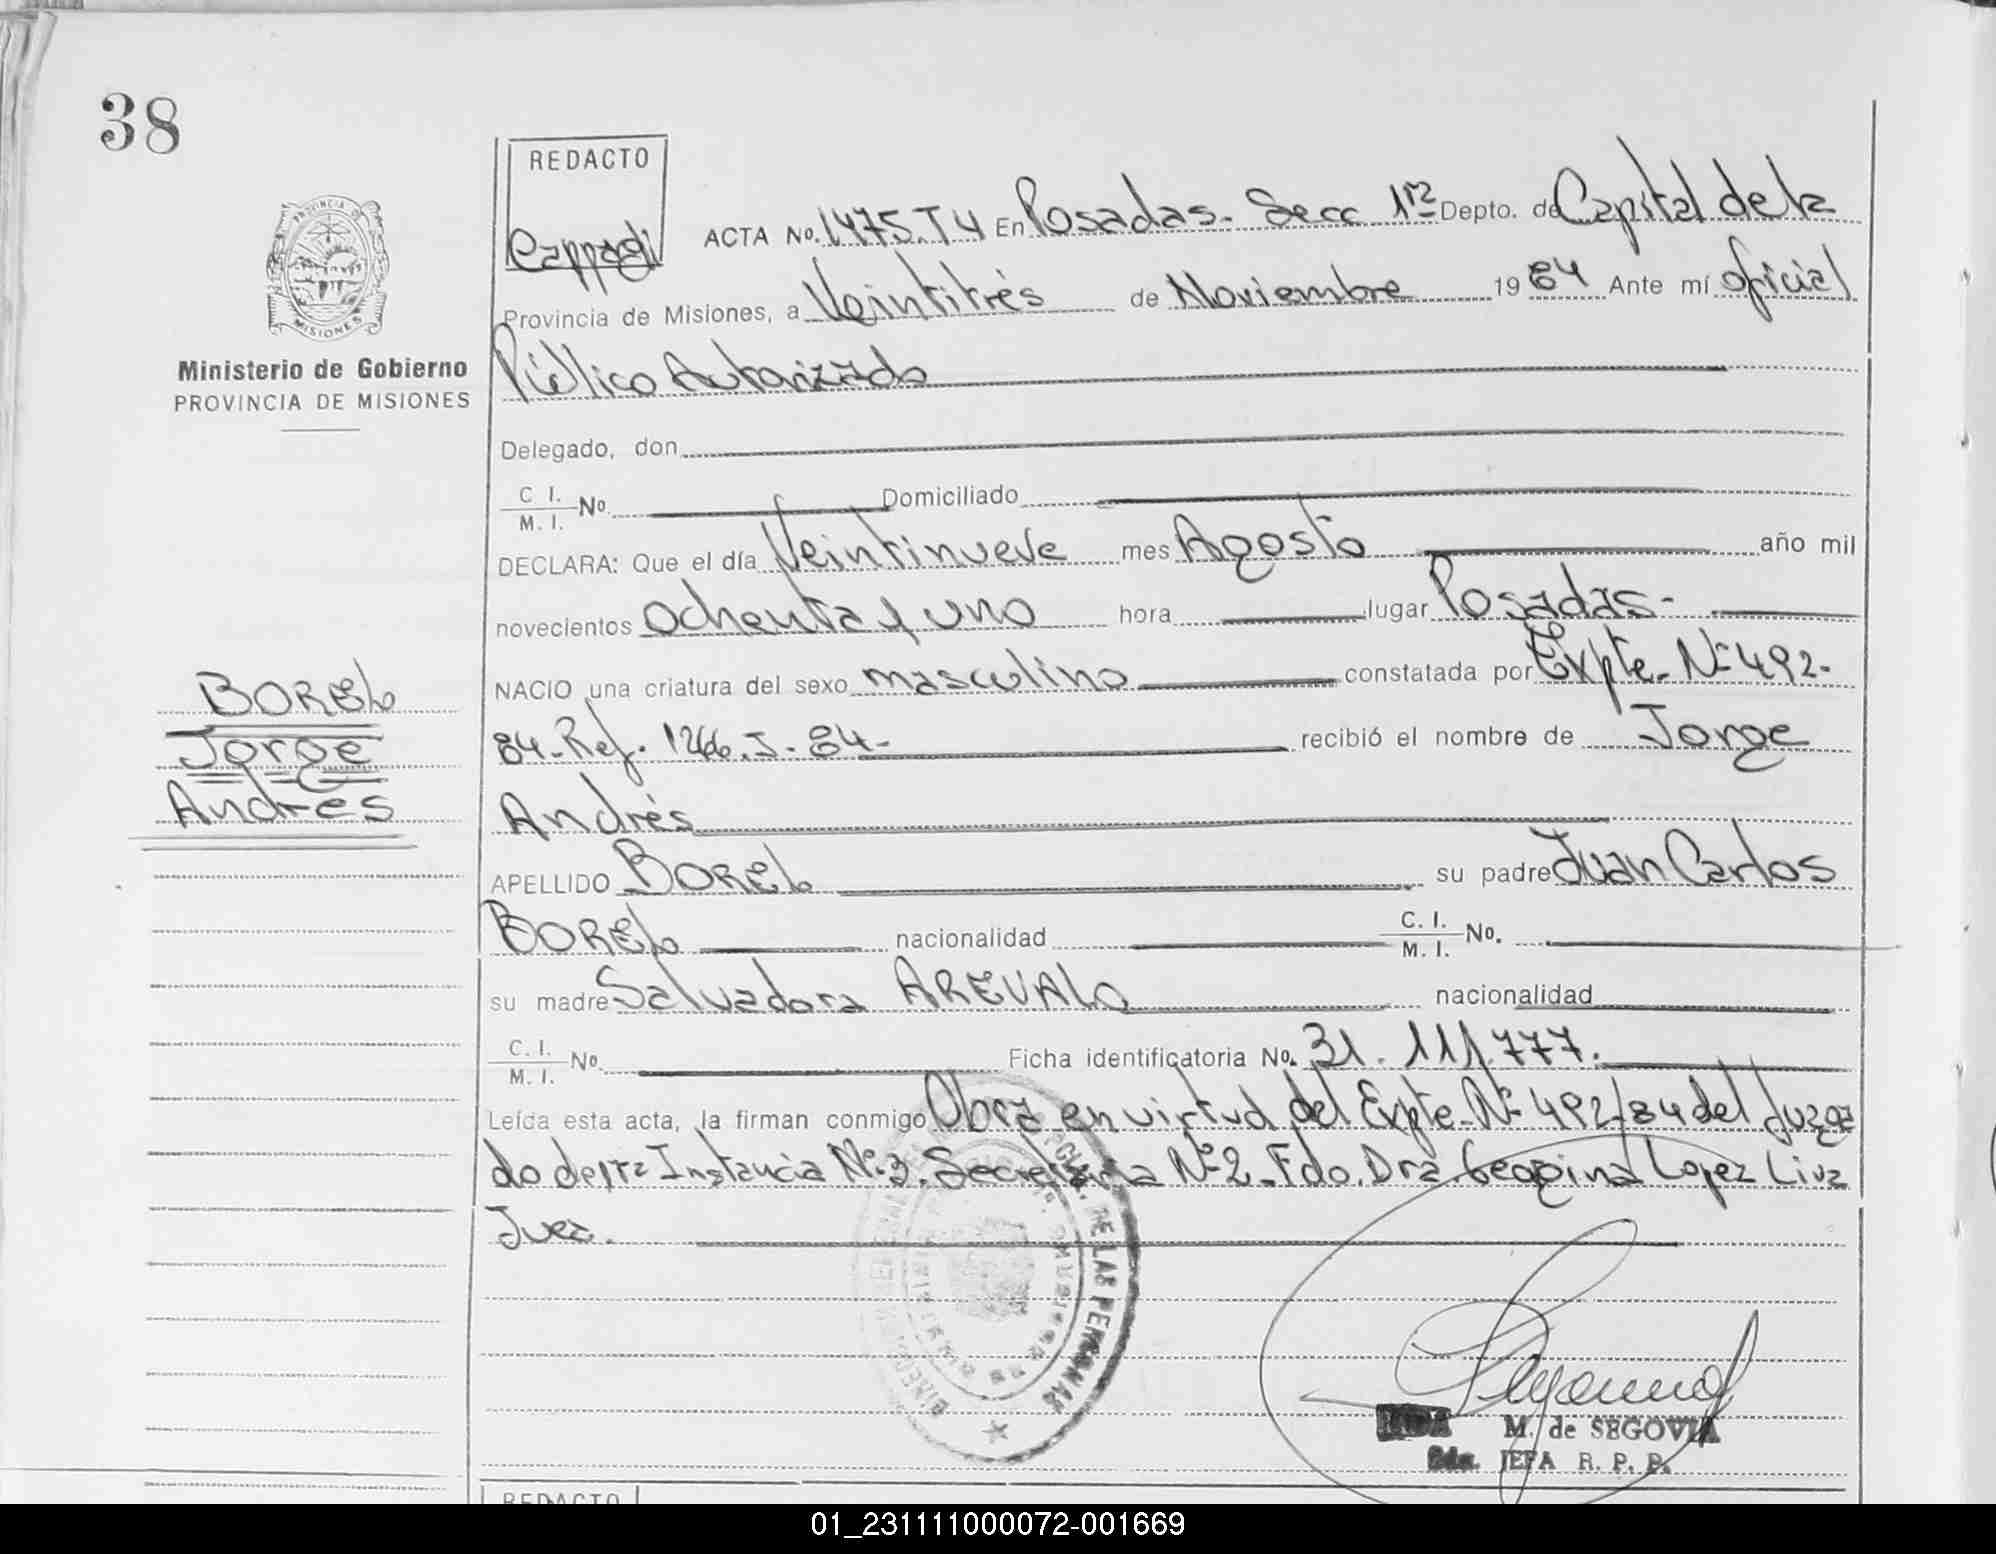 38
REDACTO
PROVINCIA DE
MISIONES
ACTA No. 1475. T4 En Posadas - Secc 1ra Depto. de Capital de la
Provincia de Misiones, a Veintitrés de Noviembre 1984 Ante mí oficial
Ministerio de Gobierno
PROVINCIA DE MISIONES
Público Autorizado
Delegado, don
C. I. / M. I. No. Domiciliado
DECLARA: Que el día Veintinueve mes Agosto año mil
novecientos ochenta y uno hora lugar Posadas-
NACIO una criatura del sexo masculino constatada por Expte. Nº 492-
84- Ref. J-84- recibió el nombre de Jorge
Andrés
BOREL
Jorge
Andrés
APELLIDO BOREL su padre Juan Carlos
BOREL nacionalidad C. I. / M. I. No.
su madre Salvadora AREVALO nacionalidad
C. I. / M. I. No. Ficha identificatoria No. 31.111.777.
Leída esta acta, la firman conmigo Obra en virtud del Expte. Nº 492/84 del Juzga
do de 1ra Instancia Nº 3. Secretaria Nº 2. Fdo. Dra. Georgina Lopez Liva
Juez.
DE LAS PERSONAS
M. de SEGOVIA
JEFA R. P. P.
REDACTO
01_231111000072-001669